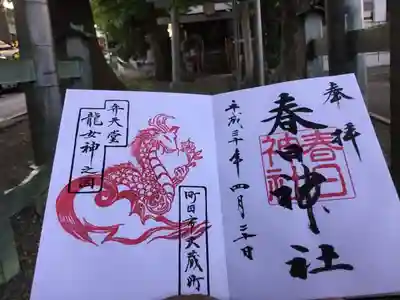 奉拝
春日神社
春日
神社
平成三十年四月三十日
弁天堂
龍女神之図
町田市大蔵町